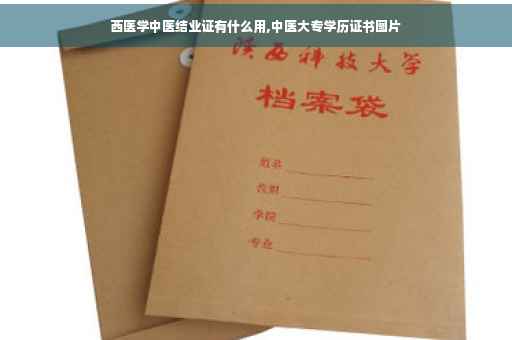 西医学中医结业证有什么用,中医大专学历证书图片
陕西科技大学
档案袋
姓名
学院
专业